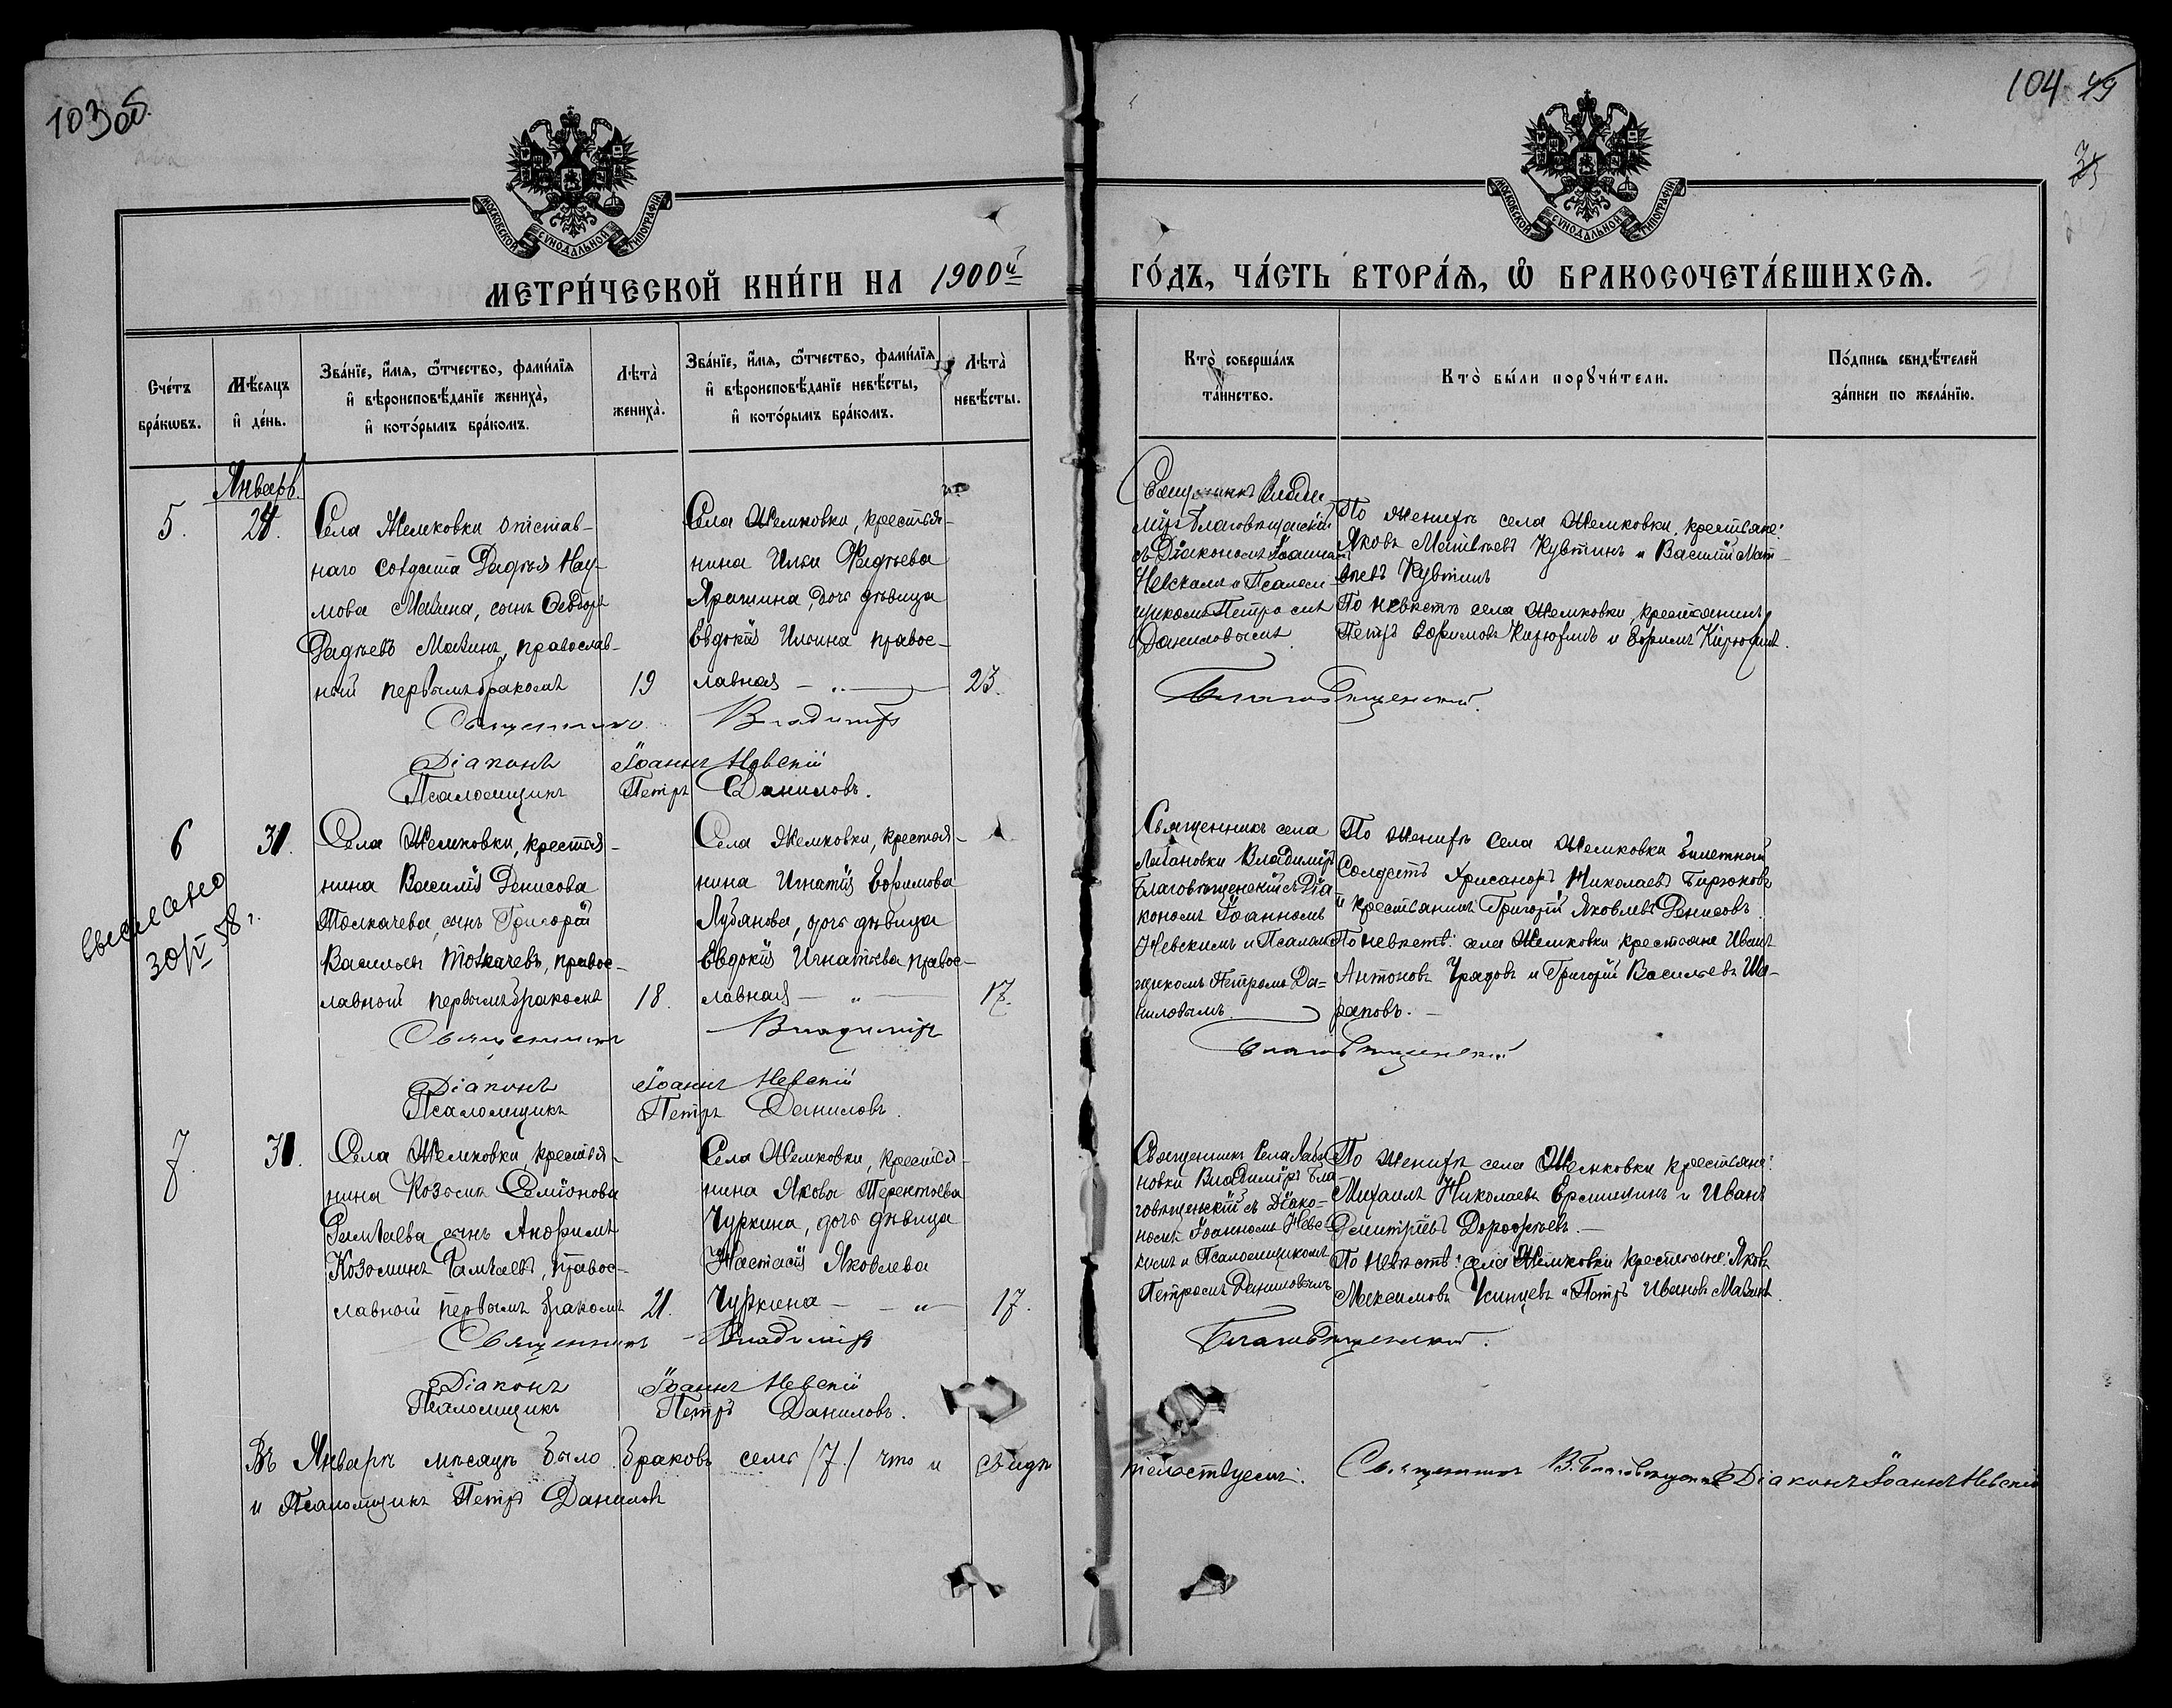 103 об.
104 49
МОСКОВСКОЙ СУНОДАЛЬНОЙ ТИПОГРАФІИ
МОСКОВСКОЙ СУНОДАЛЬНОЙ ТИПОГРАФІИ
МЕТРИ́ЧЕСКОЙ КНИ́ГИ НА 1900й
ГО́ДЪ, ЧА́СТЬ ВТОРА́Я, Ѡ҆ БРАКОСОЧЕТА́ВШИХСЯ.
Сче́тъ
бра́кωвъ.
Мѣ́сяцъ
и҆ де́нь.
Зва́нїе, и҆́мя, ѻ҆́тчество, фами́лїя
и҆ вѣроисповѣ́данїе жениха̀,
и҆ кото́рымъ бра́комъ.
Лѣта̀
жениха̀.
Зва́нїе, и҆́мя, ѻ҆́тчество, фами́лїя
и҆ вѣроисповѣ́данїе невѣ́сты,
и҆ кото́рымъ бра́комъ.
Лѣта̀
невѣ́сты.
Кто̀ соверша́лъ
та́инство.
Кто̀ бы́ли порꙋчи́тели.
По́дпись свидѣ́телей
за́писи по жела́нїю.
Январь.
5.
24.
Села Жемковки отстав-
наго солдата Фадѣя Нау-
мова Мавина, сынъ Ѳедоръ
Фадѣевъ Мавинъ, православ-
ный первымъ бракомъ
19
Села Жемковки, крестья-
нина Ильи Фадѣева
Ярашина, дочь дѣвица
Евдокія Ильина правос-
лавная — „ —
23.
Священникъ Влади-
міръ Благовѣщенскій
съ Діакономъ Іоанномъ
Невскимъ и Псаломщи-
щикомъ Петромъ
Даниловымъ
По женихѣ села Жемковки, крестьяне:
Яковъ Матвѣевъ Кувтинъ и Василій Мат-
вѣевъ Кувтинъ
По невѣстѣ села Жемковки, крестьянинъ
Петръ Ефимовъ Кирюхинъ и Ефимъ Кирюхинъ.
Священникъ Владиміръ Благовѣщенскій.
Діаконъ Іоаннъ Невскій
Псаломщикъ Петръ Даниловъ.
6
31.
выслано
30/IV 58 г.
Села Жемковки, крестья-
нина Василія Денисова
Толкачева, сынъ Григорій
Васильевъ Толкачевъ, правос-
лавный первымъ бракомъ
18.
Села Жемковки, крестья-
нина Игнатія Ефимова
Лубянова, дочь дѣвица
Евдокія Игнатьева правос-
лавная — „ —
17.
Священникъ села
Владиміръ
Благовѣщенскій съ Діа-
кономъ Іоанномъ
Невскимъ и Псалом-
щикомъ Петромъ Да-
ниловымъ
По женихѣ села Жемковки билетный
Солдатъ Хрисанфъ Николаевъ Бирюковъ
и крестьянинъ Григорій Яковлевъ Денисовъ
По невѣстѣ: села Жемковки крестьяне Иванъ
Антоновъ Урядовъ и Григорій Васильевъ Ша-
раповъ. —
Священникъ Владиміръ Благовѣщенскій
Діаконъ Іоаннъ Невскій
Псаломщикъ Петръ Даниловъ.
7.
31.
Села Жемковки, крестья-
нина Козьмы Семіонова
сынъ Анфимъ
Козьминъ, правос-
лавный первымъ бракомъ
21.
Села Жемковки, крестья-
нина Якова Терентьева
Чуркина, дочь дѣвица
Настасія Яковлева
Чуркина — „ —
17.
Священникъ Села
новки Владиміръ Бла-
говѣщенскій съ Діако-
номъ Іоанномъ Невс-
кимъ и Псаломщикомъ
Петромъ Даниловымъ
По женихѣ села Жемковки крестьяне:
Михаилъ Николаевъ и Иванъ
Дмитріевъ Дорофѣевъ. —
По невѣстѣ: села Жемковки крестьяне: Яковъ
Максимовъ и Петръ Ивановъ Мавинъ.
Священникъ Владиміръ Благовѣщенскій.
Діаконъ Іоаннъ Невскій
Псаломщикъ Петръ Даниловъ.
Въ Январѣ мѣсяцѣ было браковъ семь /7./ что и свидѣтельствуемъ: Священникъ В. Благовѣщенскій Діаконъ Іоаннъ Невскій
и Псаломщикъ Петръ Даниловъ